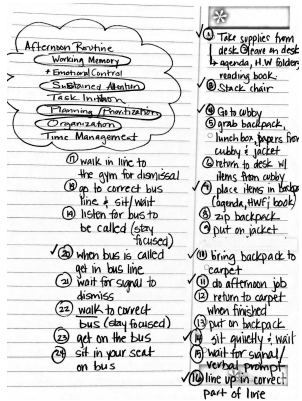 Afternoon Routine
Working Memory
+ Emotional Control
Sustained Attention
Task Initiation
Planning/Prioritization
Organization
Time Management
17 walk in line to
the gym for dismissal
18 go to correct bus
line & sit/wait
19 listen for bus to
be called (stay
focused)
✓ 20 when bus is called
get in bus line
21 wait for signal to
dismiss
22 walk to correct
bus (stay focused)
23 get on the bus
24 sit in your seat
on bus
✓ 1 Take supplies from
desk 2 leave on desk
agenda, H.W folder,
reading book
3 Stack chair
✓ 4 Go to cubby
5 grab backpack,
lunch box, papers from
cubby & jacket
6 return to desk w/
items from cubby
✓ 7 place items in backpack
(agenda, HWF, book)
8 zip backpack
9 put on jacket
✓ 10 bring backpack to
carpet
✓ 11 do afternoon job
12 return to carpet
when finished
13 put on backpack
14 sit quietly & wait
15 wait for signal/
verbal prompt
✓ 16 line up in correct
part of line